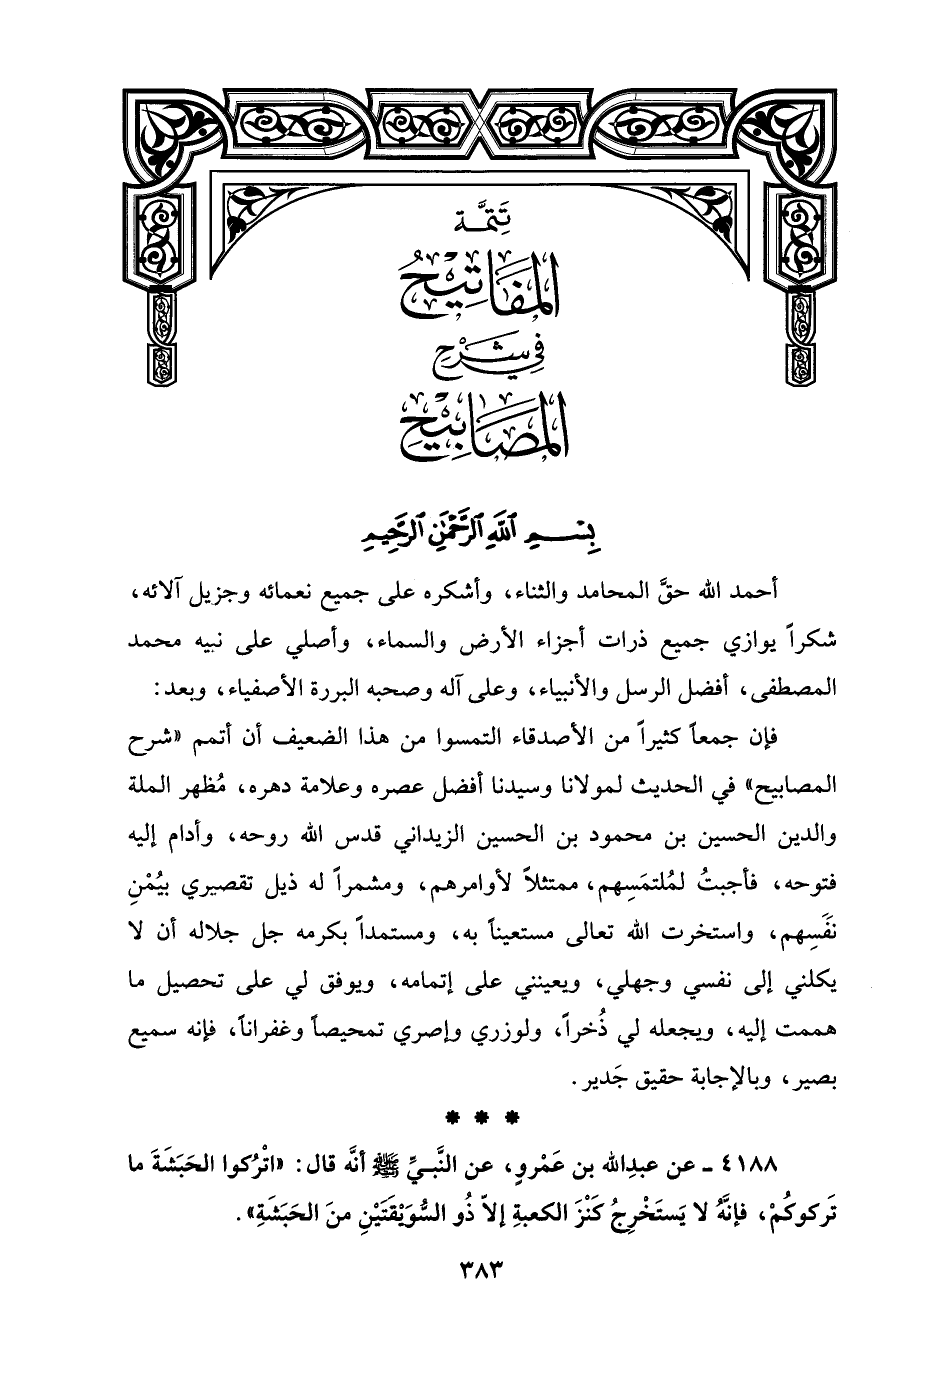 تَتِمَّة
المَفَاتِيحُ
فِي شَرْحِ
المَصَابِيحِ
بِسْمِ اللَّهِ الرَّحْمَٰنِ الرَّحِيمِ
أحمد الله حقَّ المحامد والثناء، وأشكره على جميع نعمائه وجزيل آلائه،
شكراً يوازي جميع ذرات أجزاء الأرض والسماء، وأصلي على نبيه محمد
المصطفى، أفضل الرسل والأنبياء، وعلى آله وصحبه البررة الأصفياء، وبعد:
فإن جمعاً كثيراً من الأصدقاء التمسوا من هذا الضعيف أن أتمم «شرح
المصابيح» في الحديث لمولانا وسيدنا أفضل عصره وعلامة دهره، مُظهر الملة
والدين الحسين بن محمود بن الحسين الزيداني قدس الله روحه، وأدام إليه
فتوحه، فأجبتُ لمُلتمَسِهم، ممتثلاً لأوامرهم، ومشمراً له ذيل تقصيري بيُمْنِ
نفَسِهم، واستخرت الله تعالى مستعيناً به، ومستمداً بكرمه جل جلاله أن لا
يكلني إلى نفسي وجهلي، ويعينني على إتمامه، ويوفق لي على تحصيل ما
هممت إليه، ويجعله لي ذُخراً، ولوزري وإصري تمحيصاً وغفراناً، فإنه سميع
بصير، وبالإجابة حقيق جَدير.
* * *
٤١٨٨ ـ عن عبدِالله بن عَمْروٍ، عن النَّبيِّ ﷺ أنَّه قال: «اتْرُكوا الحَبَشَةَ ما
تَركوكُمْ، فإنَّهُ لا يَستَخْرِجُ كَنْزَ الكعبةِ إلاَّ ذُو السُّوَيْقَتَيْنِ منَ الحَبَشَةِ».
٣٨٣